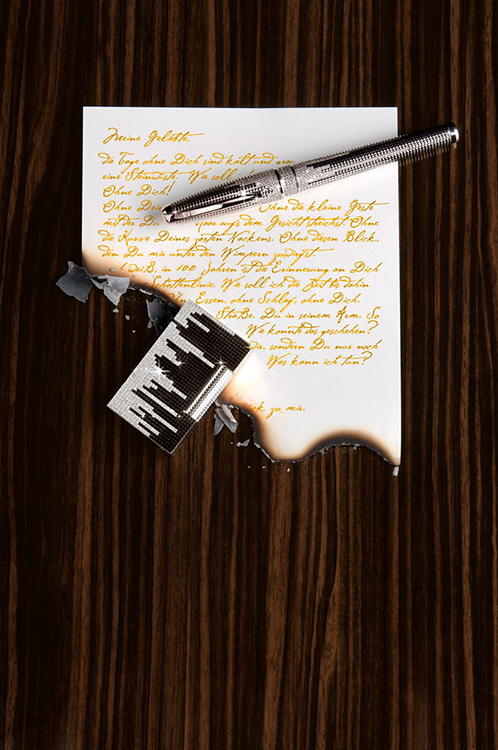 Meine Geliebte,
die Tage ohne Dich sind kalt und grau
eine Steinwüste. Wo soll
Ohne Dich!
Ohne Dei Ohne die kleine Geste
mit der Du Haar aus dem Gesicht streichst. Ohne
die Kurve Deines zarten Nackens. Ohne diesen Blick,
den Du mir unter den Wimpern zuwirfst.
weiß, in 100 Jahren ist die Erinnerung an Dich
Schattenlinie. Wo soll ich die Zeit bis dahin
Von Essen, ohne Schlaf, ohne Dich.
Straße. Du in seinem Arm. So
Wie konnte das geschehen?
Dir, sondern Du nur noch
Was kann ich tun?
ck zu mir.